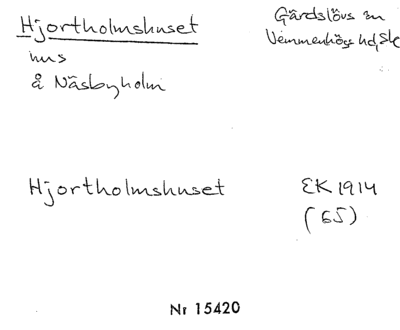 Hjortholmshuset
Gärdslövs sn
Vemmenhögs hd, Sk
hus
å Näsbyholm
Hjortholmshuset
EK 1914
(65)
Nr 15420